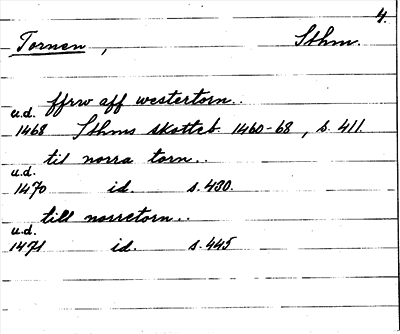 4.
Tornen, Sthm.
ffrw aff westertorn..
u.d.
1468 Sthms skotteb. 1460-68, s. 411.
til norra torn..
u.d.
1470 id. s. 430.
till norretorn..
u.d.
1471 id. s. 445